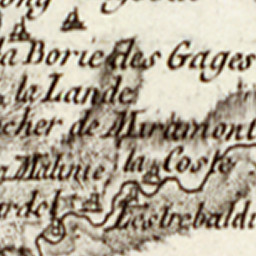 la Borie des Gages
la Lande
cher de Miramont
Malnie la Coste
ardel Lestrebaldi